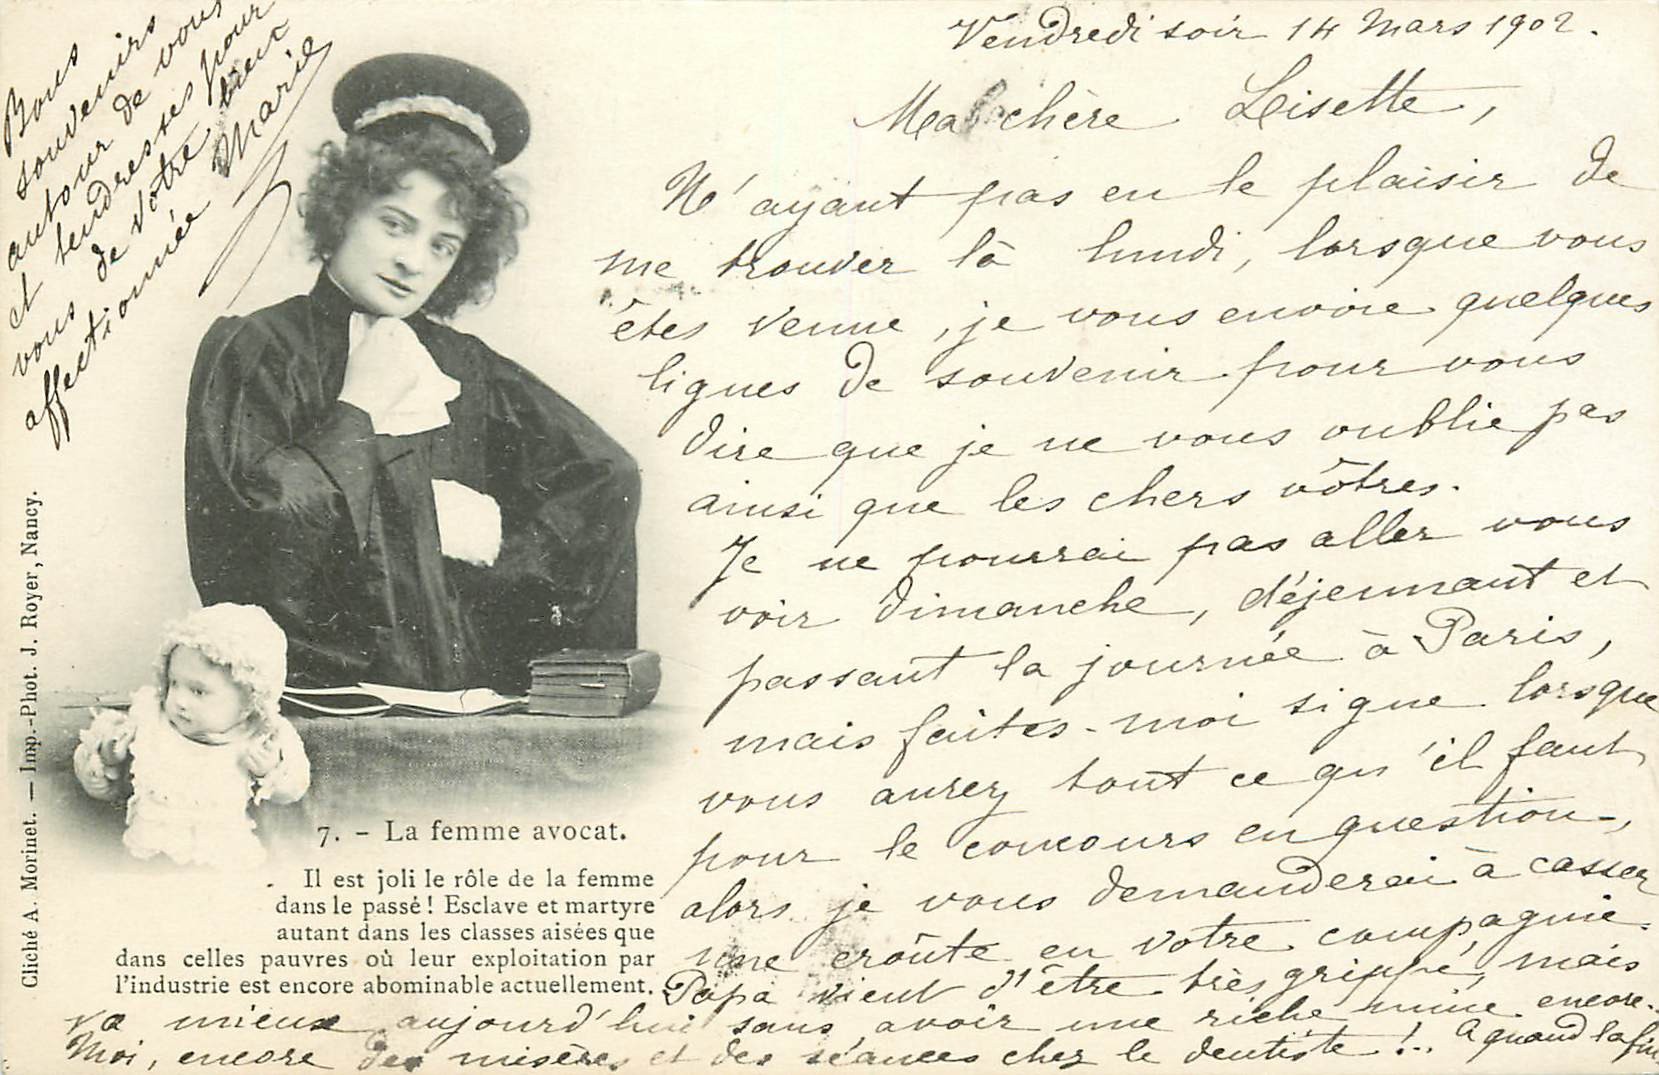 Vendredi soir 14 Mars 1902.
Ma chère Lisette,
N'ayant pas eu le plaisir de
me trouver là lundi, lorsque vous
êtes venue, je vous envoie quelques
lignes de souvenir pour vous
dire que je ne vous oublie pas
ainsi que les chers vôtres.
Je ne pourrai pas aller vous
voir dimanche, déjeunant et
passant la journée à Paris,
mais faites-moi signe lorsque
vous aurez tout ce qu'il faut
pour le concours en question,
alors je vous demanderai à casser
une croûte en votre compagnie.
Papa vient d'être très grippé, mais
va mieux aujourd'hui sans avoir une riche mine encore.
Moi, encore des misères et des séances chez le dentiste !.. A quand la fin
Bons
souvenirs
autour de vous
et tendresses pour
vous de votre vieux
affectionnée Marie
7. - La femme avocat.
Il est joli le rôle de la femme
dans le passé ! Esclave et martyre
autant dans les classes aisées que
dans celles pauvres où leur exploitation par
l'industrie est encore abominable actuellement.
Cliché A. Morinet. — Imp.-Phot. J. Royer, Nancy.